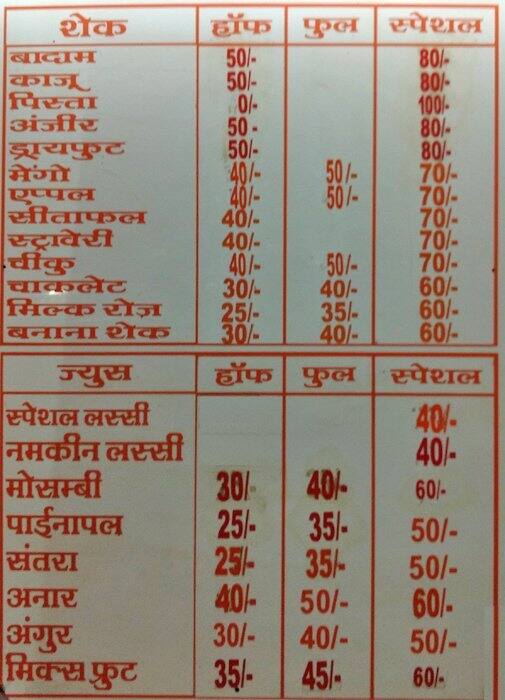 शेक हॉफ फुल स्पेशल
बादाम 50/- 80/-
काजू 50/- 80/-
पिस्ता 0/- 100/-
अंजीर 50- 80/-
ड्रायफुट 50/- 80/-
मेंगो 40/- 50/- 70/-
एप्पल 40/- 50/- 70/-
सीताफल 40/- 70/-
स्ट्रावेरी 40/- 70/-
चीकु 40/- 50/- 70/-
चाकलेट 30/- 40/- 60/-
मिल्क रोज़ 25/- 35/- 60/-
बनाना शेक 30/- 40/- 60/-
ज्युस हॉफ फुल स्पेशल
स्पेशल लस्सी 40/-
नमकीन लस्सी 40/-
मोसम्बी 30/- 40/- 60/-
पाईनापल 25/- 35/- 50/-
संतरा 25/- 35/- 50/-
अनार 40/- 50/- 60/-
अंगुर 30/- 40/- 50/-
मिक्स फ्रुट 35/- 45/- 60/-